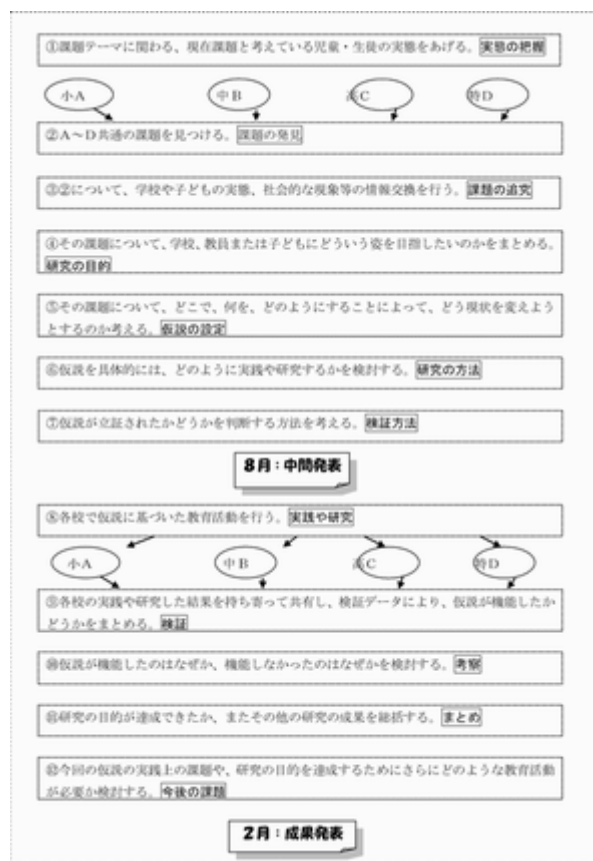 ①課題テーマに関わる、現在課題と考えている児童・生徒の実態をあげる。実態の把握
小A 中B 高C 特D
②A～D共通の課題を見つける。課題の発見
③②について、学校や子どもの実態、社会的な現象等の情報交換を行う。課題の追究
④その課題について、学校、教員または子どもにどういう姿を目指したいのかをまとめる。
研究の目的
⑤その課題について、どこで、何を、どのようにすることによって、どう現状を変えよう
とするのか考える。仮説の設定
⑥仮説を具体的には、どのように実践や研究するかを検討する。研究の方法
⑦仮説が立証されたかどうかを判断する方法を考える。検証方法
8月：中間発表
⑧各校で仮説に基づいた教育活動を行う。実践や研究
小A 中B 高C 特D
⑨各校の実践や研究した結果を持ち寄って共有し、検証データにより、仮説が機能したか
どうかをまとめる。検証
⑩仮説が機能したのはなぜか、機能しなかったのはなぜかを検討する。考察
⑪研究の目的が達成できたか、またその他の研究の成果を総括する。まとめ
⑫今回の仮説の実践上の課題や、研究の目的を達成するためにさらにどのような教育活動
が必要か検討する。今後の課題
2月：成果発表